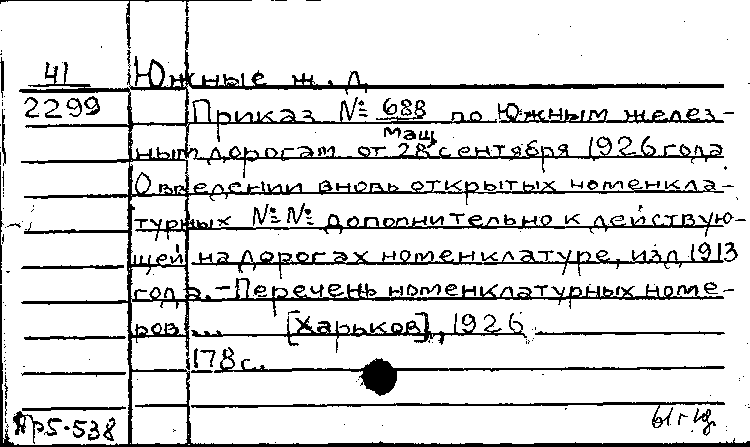 41 Южные ж.д.
2299 Приказ № 688 по Южным желез-
Мащ
ным дорогам от 28 сентября 1926 года
О введении вновь открытых номенкла-
турных №№ дополнительно к действую-
щей на дорогах номенклатуре, изд. 1913
года. - Перечень номенклатурных номе-
ров... [Харьков], 1926.
178 с.